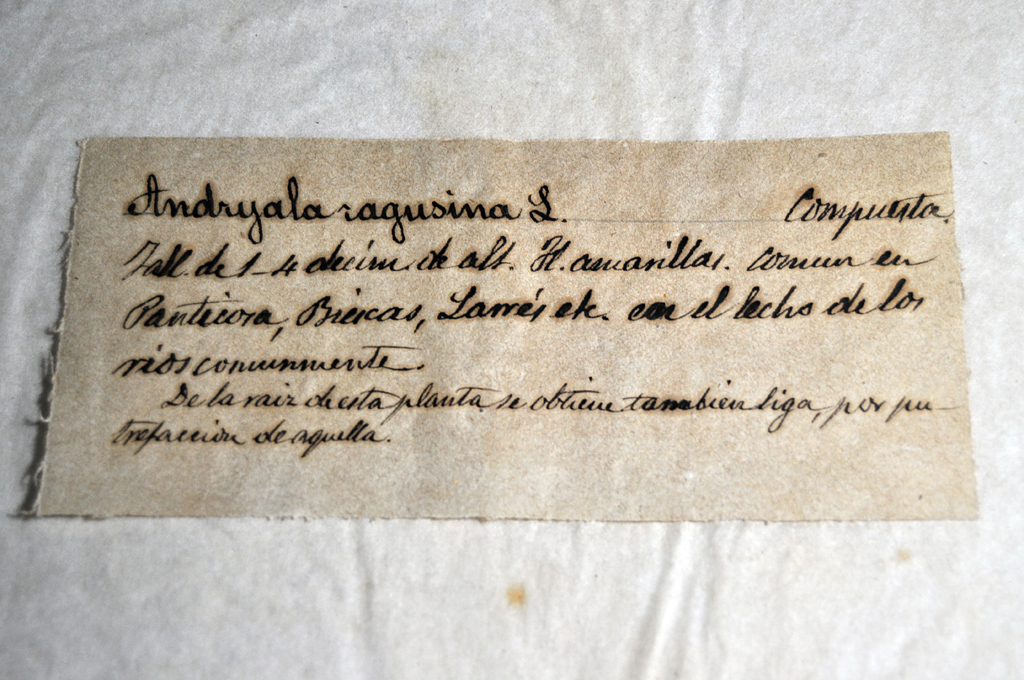 Andryala ragusina L. Compuesta.
Tall. de 1-4 decim. de alt. Fl. amarillas. comun en
Panticosa, Biescas, Larrés etc. en el lecho de los
rios comunmente.
De la raiz de esta planta se obtiene tambien liga, por pu-
trefaccion de aquella.